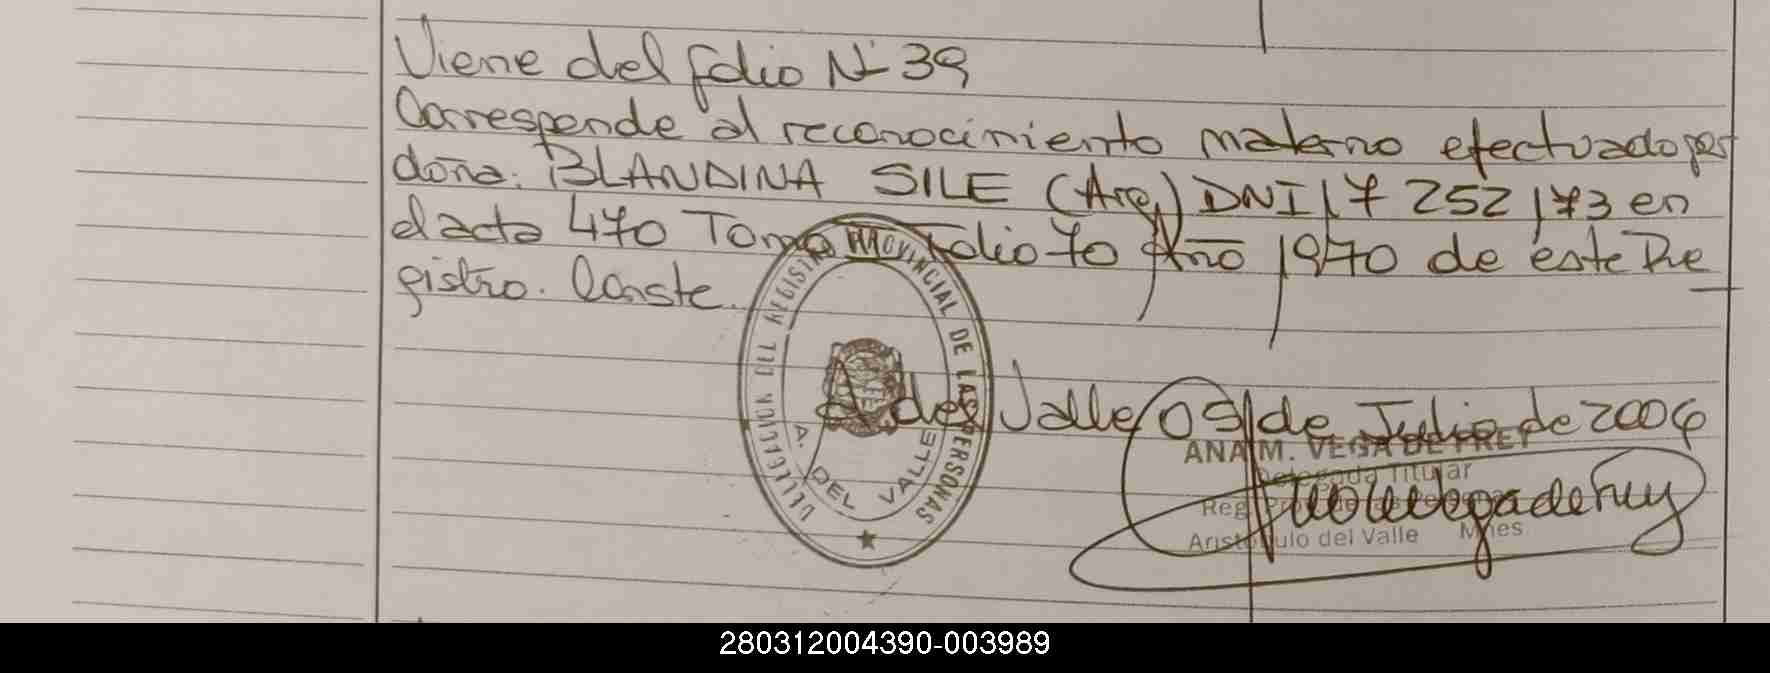 Viene del folio Nº 39
Corresponde al reconocimiento materno efectuado por
doña. BLANDINA SILE (Arg) DNI 17 252 173 en
el acta 470 Tomo Folio 70 Año 1970 de este Re
gistro. Conste.
A. del Valle 05 de Julio de 2006
DELEGACION DEL REGISTRO PROVINCIAL DE LAS PERSONAS
A. DEL VALLE
ANA M. VEGA DE FREY
Delegada Titular
Aristóbulo del Valle Mnes
280312004390-003989